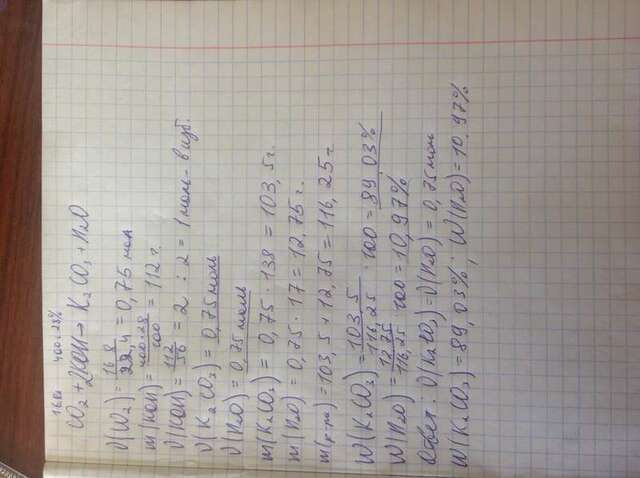 16,8л 400г 28%
CO₂ + 2KOH → K₂CO₃ + H₂O
ν(CO₂) = 16,8 / 22,4 = 0,75 мол
m(KOH) = 400·28 / 100 = 112 г.
ν(KOH) = 112 / 56 = 2 : 2 = 1 моль - в изб.
ν(K₂CO₃) = 0,75 моль
ν(H₂O) = 0,75 моль
m(K₂CO₃) = 0,75 · 138 = 103,5 г.
m(H₂O) = 0,75 · 17 = 12,75 г.
m(р-ра) = 103,5 + 12,75 = 116,25 г
W(K₂CO₃) = 103,5 / 116,25 · 100 = 89,03%
W(H₂O) = 12,75 / 116,25 · 100 = 10,97%
Ответ: ν(K₂CO₃) = ν(H₂O) = 0,75 моль
W(K₂CO₃) = 89,03%; W(H₂O) = 10,97%